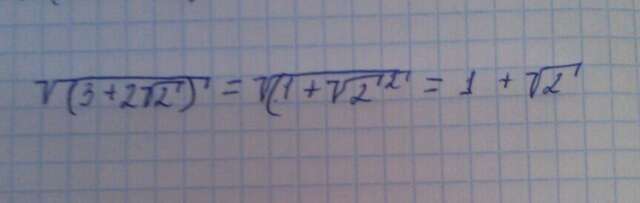 √(3+2√2) = √(1+√2)² = 1 + √2